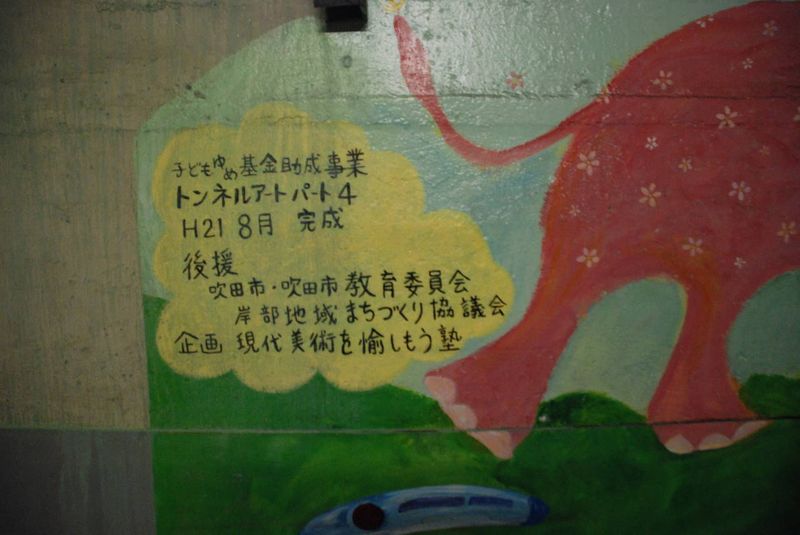 子どもゆめ基金助成事業
トンネルアートパート4
H21 8月 完成
後援
吹田市・吹田市教育委員会
岸部地域まちづくり協議会
企画 現代美術を愉しもう塾